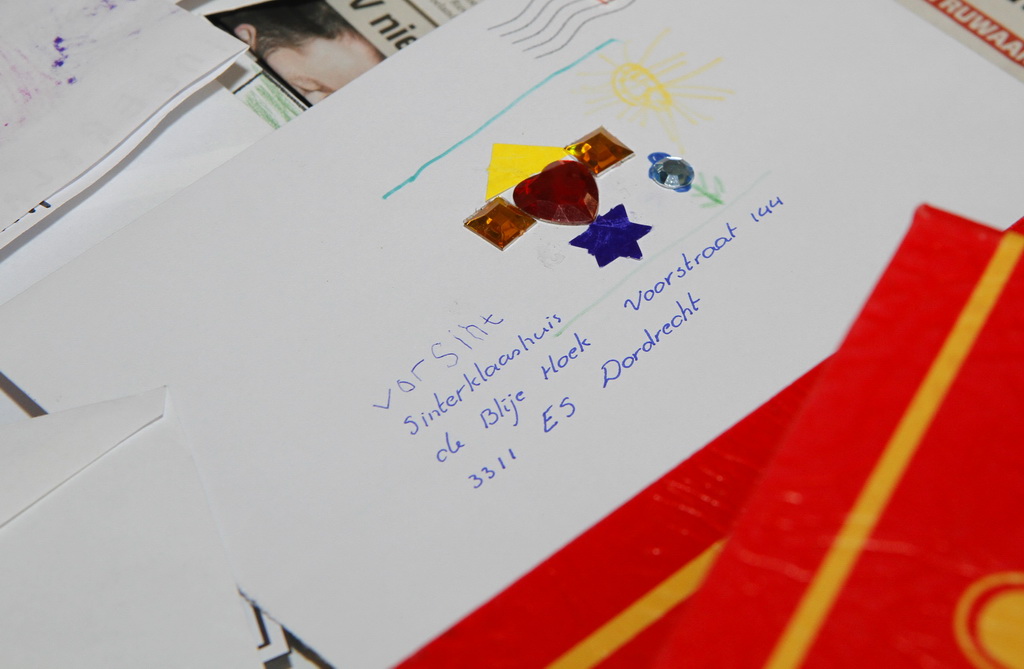 V nie
RUWAA
vor Sint
Sinterklaashuis
de Blije Hoek Voorstraat 144
3311 ES Dordrecht